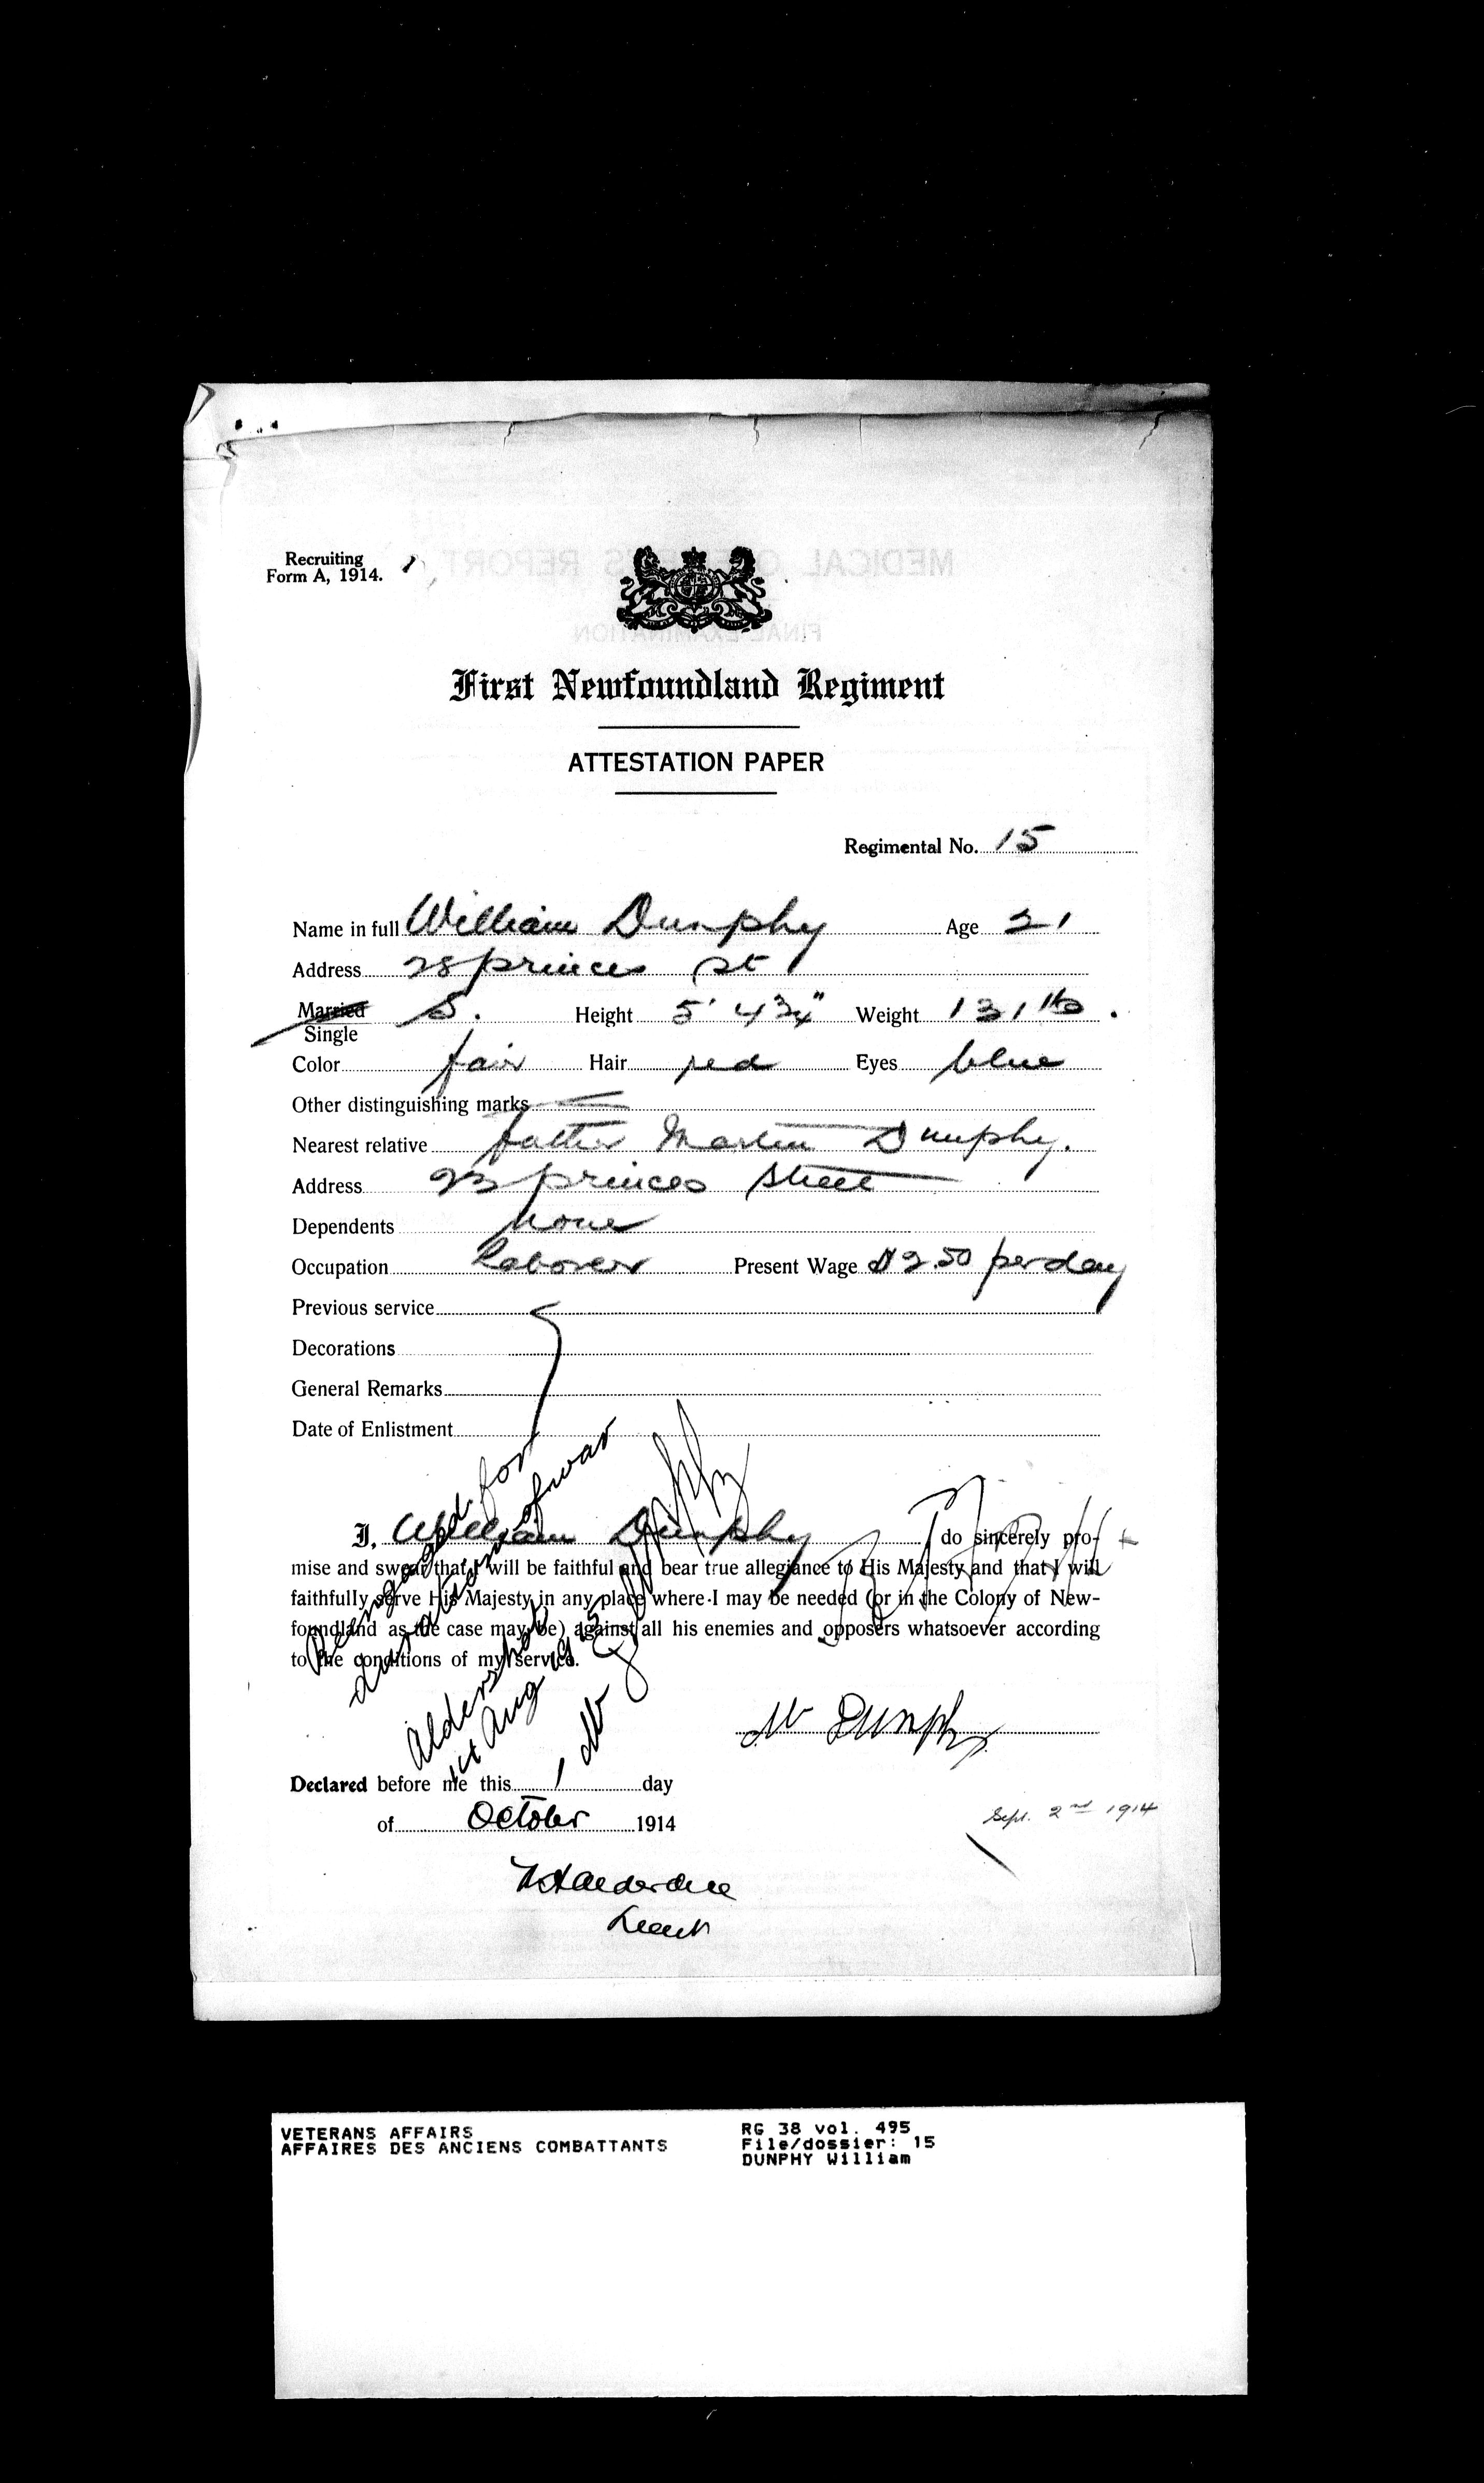 Recruiting
Form A, 1914.
MEDICAL OFFICER'S REPORT
FINAL EXAMINATION
First Newfoundland Regiment
ATTESTATION PAPER
Regimental No. 15
Name in full William Dunphy Age 21
Address 28 princes st
Married S. Height 5' 4 3/4" Weight 131 lbs.
Single
Color fair Hair red Eyes blue
Other distinguishing marks
Nearest relative father Martin Dunphy.
Address 23 princes street
Dependents none
Occupation Laborer Present Wage $2.50 per day
Previous service
Decorations
General Remarks
Date of Enlistment
I, William Dunphy do sincerely pro-
mise and swear that I will be faithful and bear true allegiance to His Majesty and that I will
faithfully serve His Majesty in any place where I may be needed (or in the Colony of New-
foundland as the case may be) against all his enemies and opposers whatsoever according
to the conditions of my service.
Reengaged for
duration of war
Aldershot
1st Aug 1915
W Dunphy
W Dunphy
Declared before me this 1 day
of October 1914
Sept. 2nd 1914
Lieut
VETERANS AFFAIRS RG 38 vol. 495
AFFAIRES DES ANCIENS COMBATTANTS File/dossier: 15
DUNPHY William